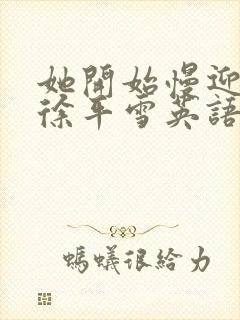 她開始慢迎
徐平雪英語
螞蟻很給力